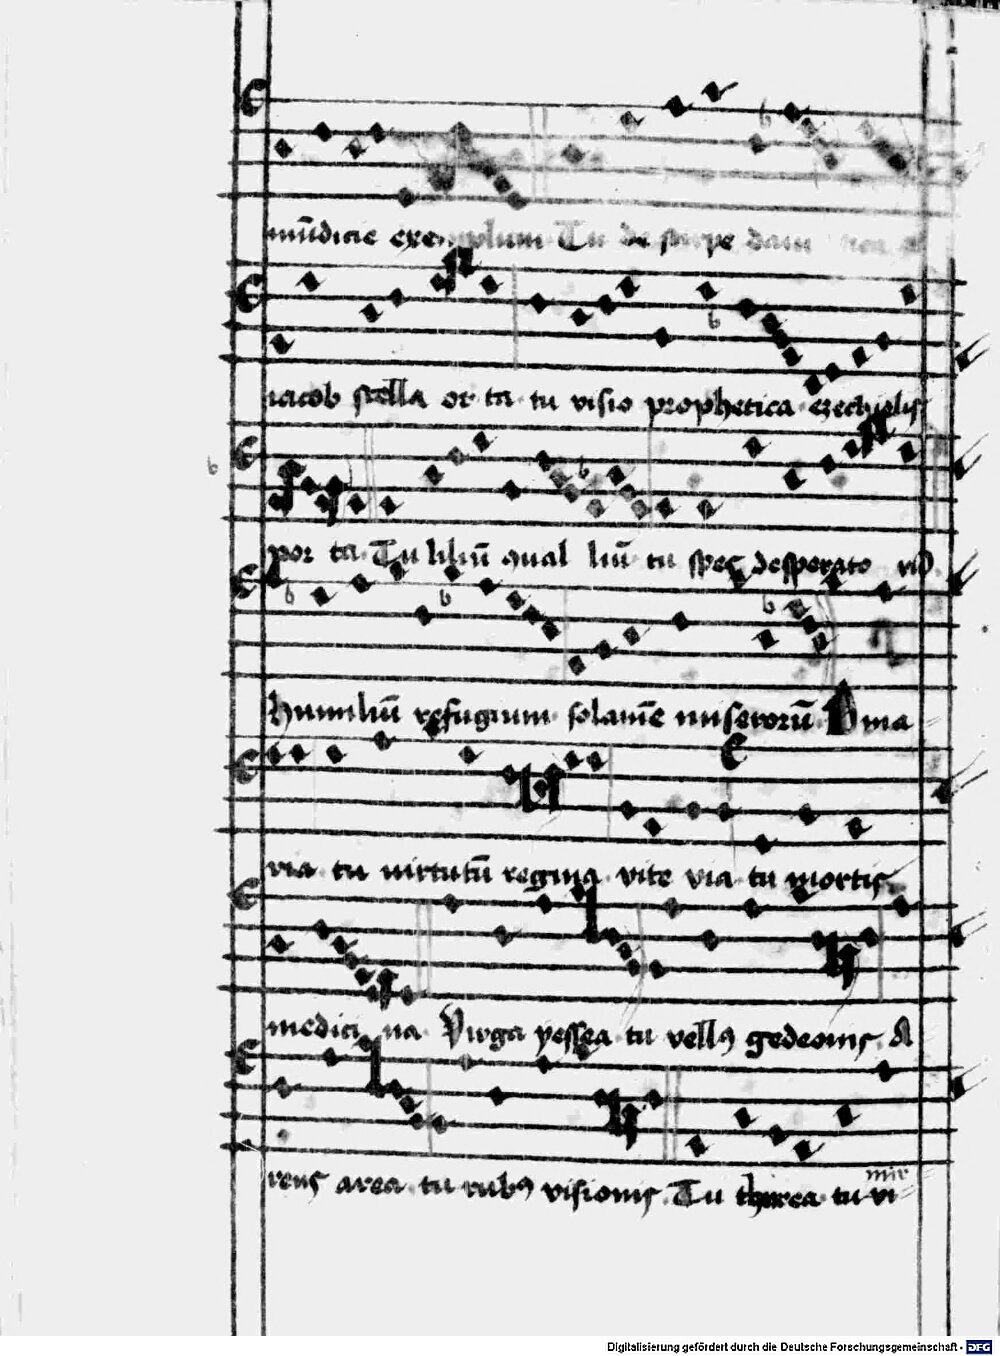 mūdicie exemplum Tu de stirpe
iacob stella or ta tu visio prophetica ezechielis
por ta Tu liliū qual liū tu spes desperato
humiliū refugium solamē miserorū Ama
ria tu virtutū regina vite via tu mortis
medici na Virga yessea tu vellꝰ gedeonis A
rens area tu rubꝰ visionis Tu thurea tu vi
mir
Digitalisierung gefördert durch die Deutsche Forschungsgemeinschaft - DFG